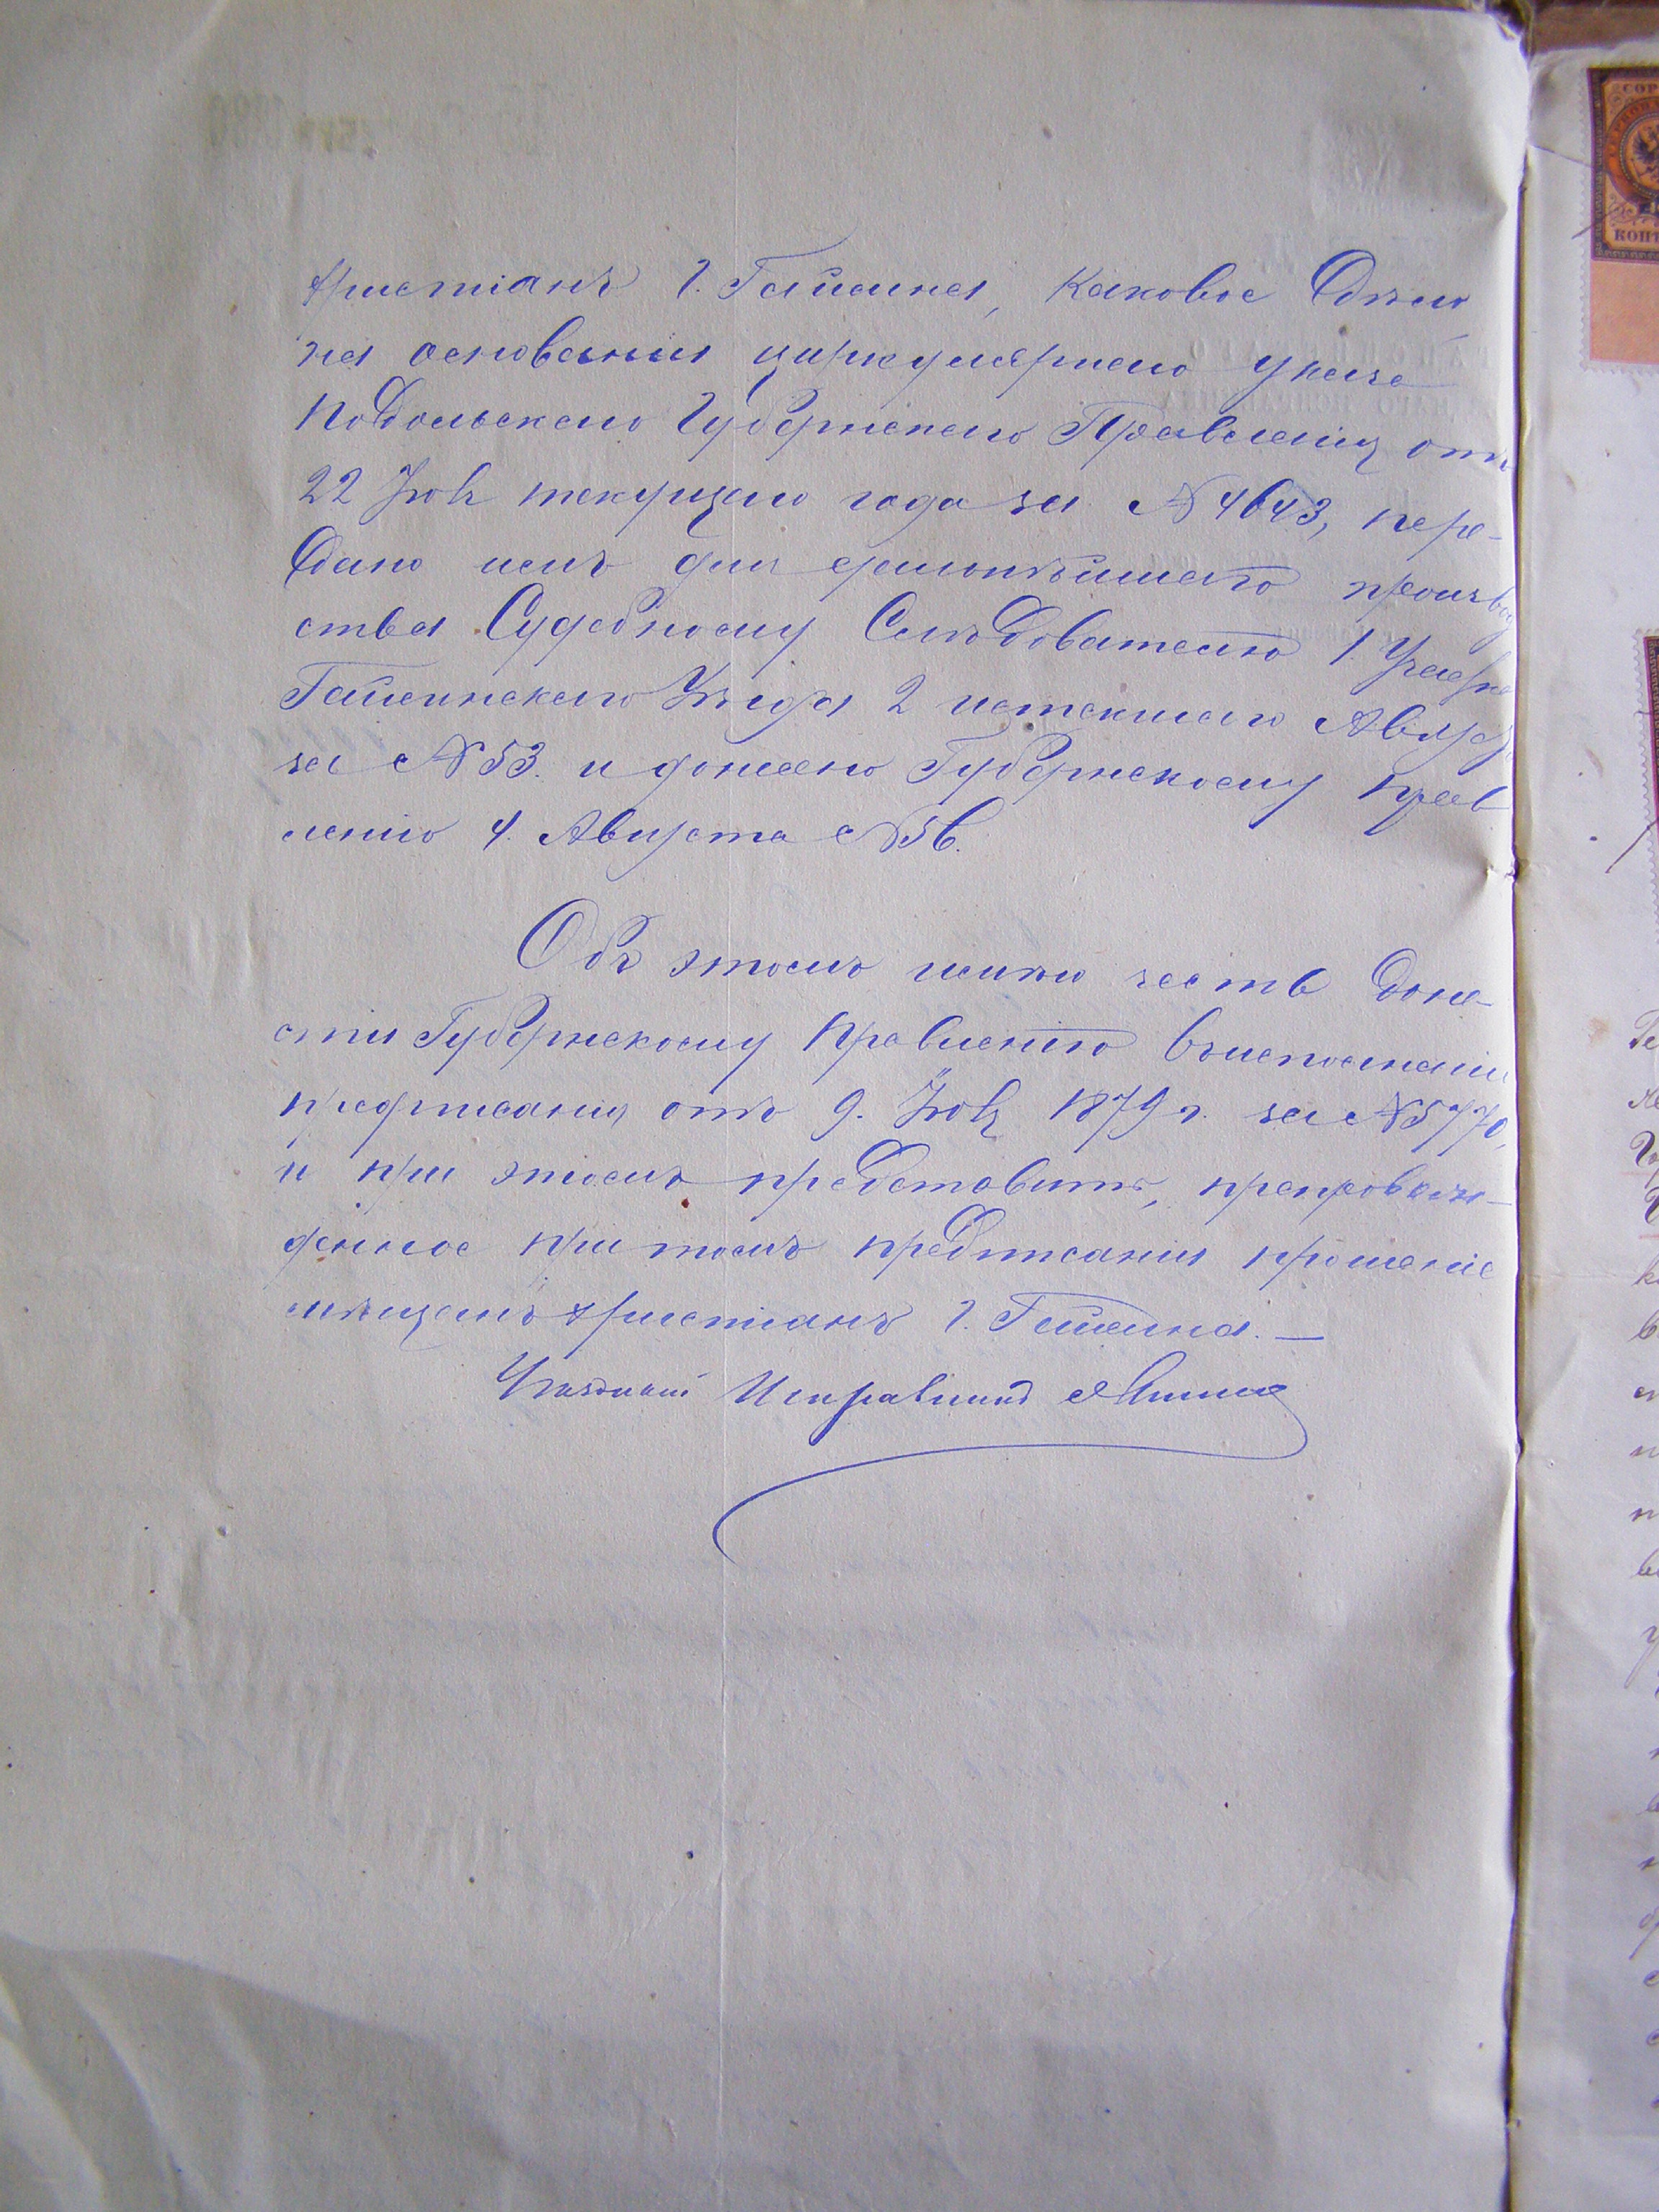 христіанъ г. Гайсина, каковое дѣло
на основаніи циркулярнаго указа
Подольскаго Губернскаго Правленія отъ
22 Іюля текущаго года за № 4643, пере-
дано имъ для дальнѣйшаго производ
ства Судебному Слѣдователю 1 Участка
Гайсинскаго Уѣзда 2 истекшаго Августа
за № 53. и донесено Губернскому Прав
ленію 4. Августа № 56.
Объ этомъ имѣю честь доне-
сти Губернскому Правленію въ исполненіи
предписанія отъ 9. Іюля 1879 г. за № 5770,
и при этомъ представить, препровож-
денное при томъ предписаніи прошеніе
мѣщанъ христіанъ г. Гайсина. —
Уѣздный Исправникъ
СОР
КОП